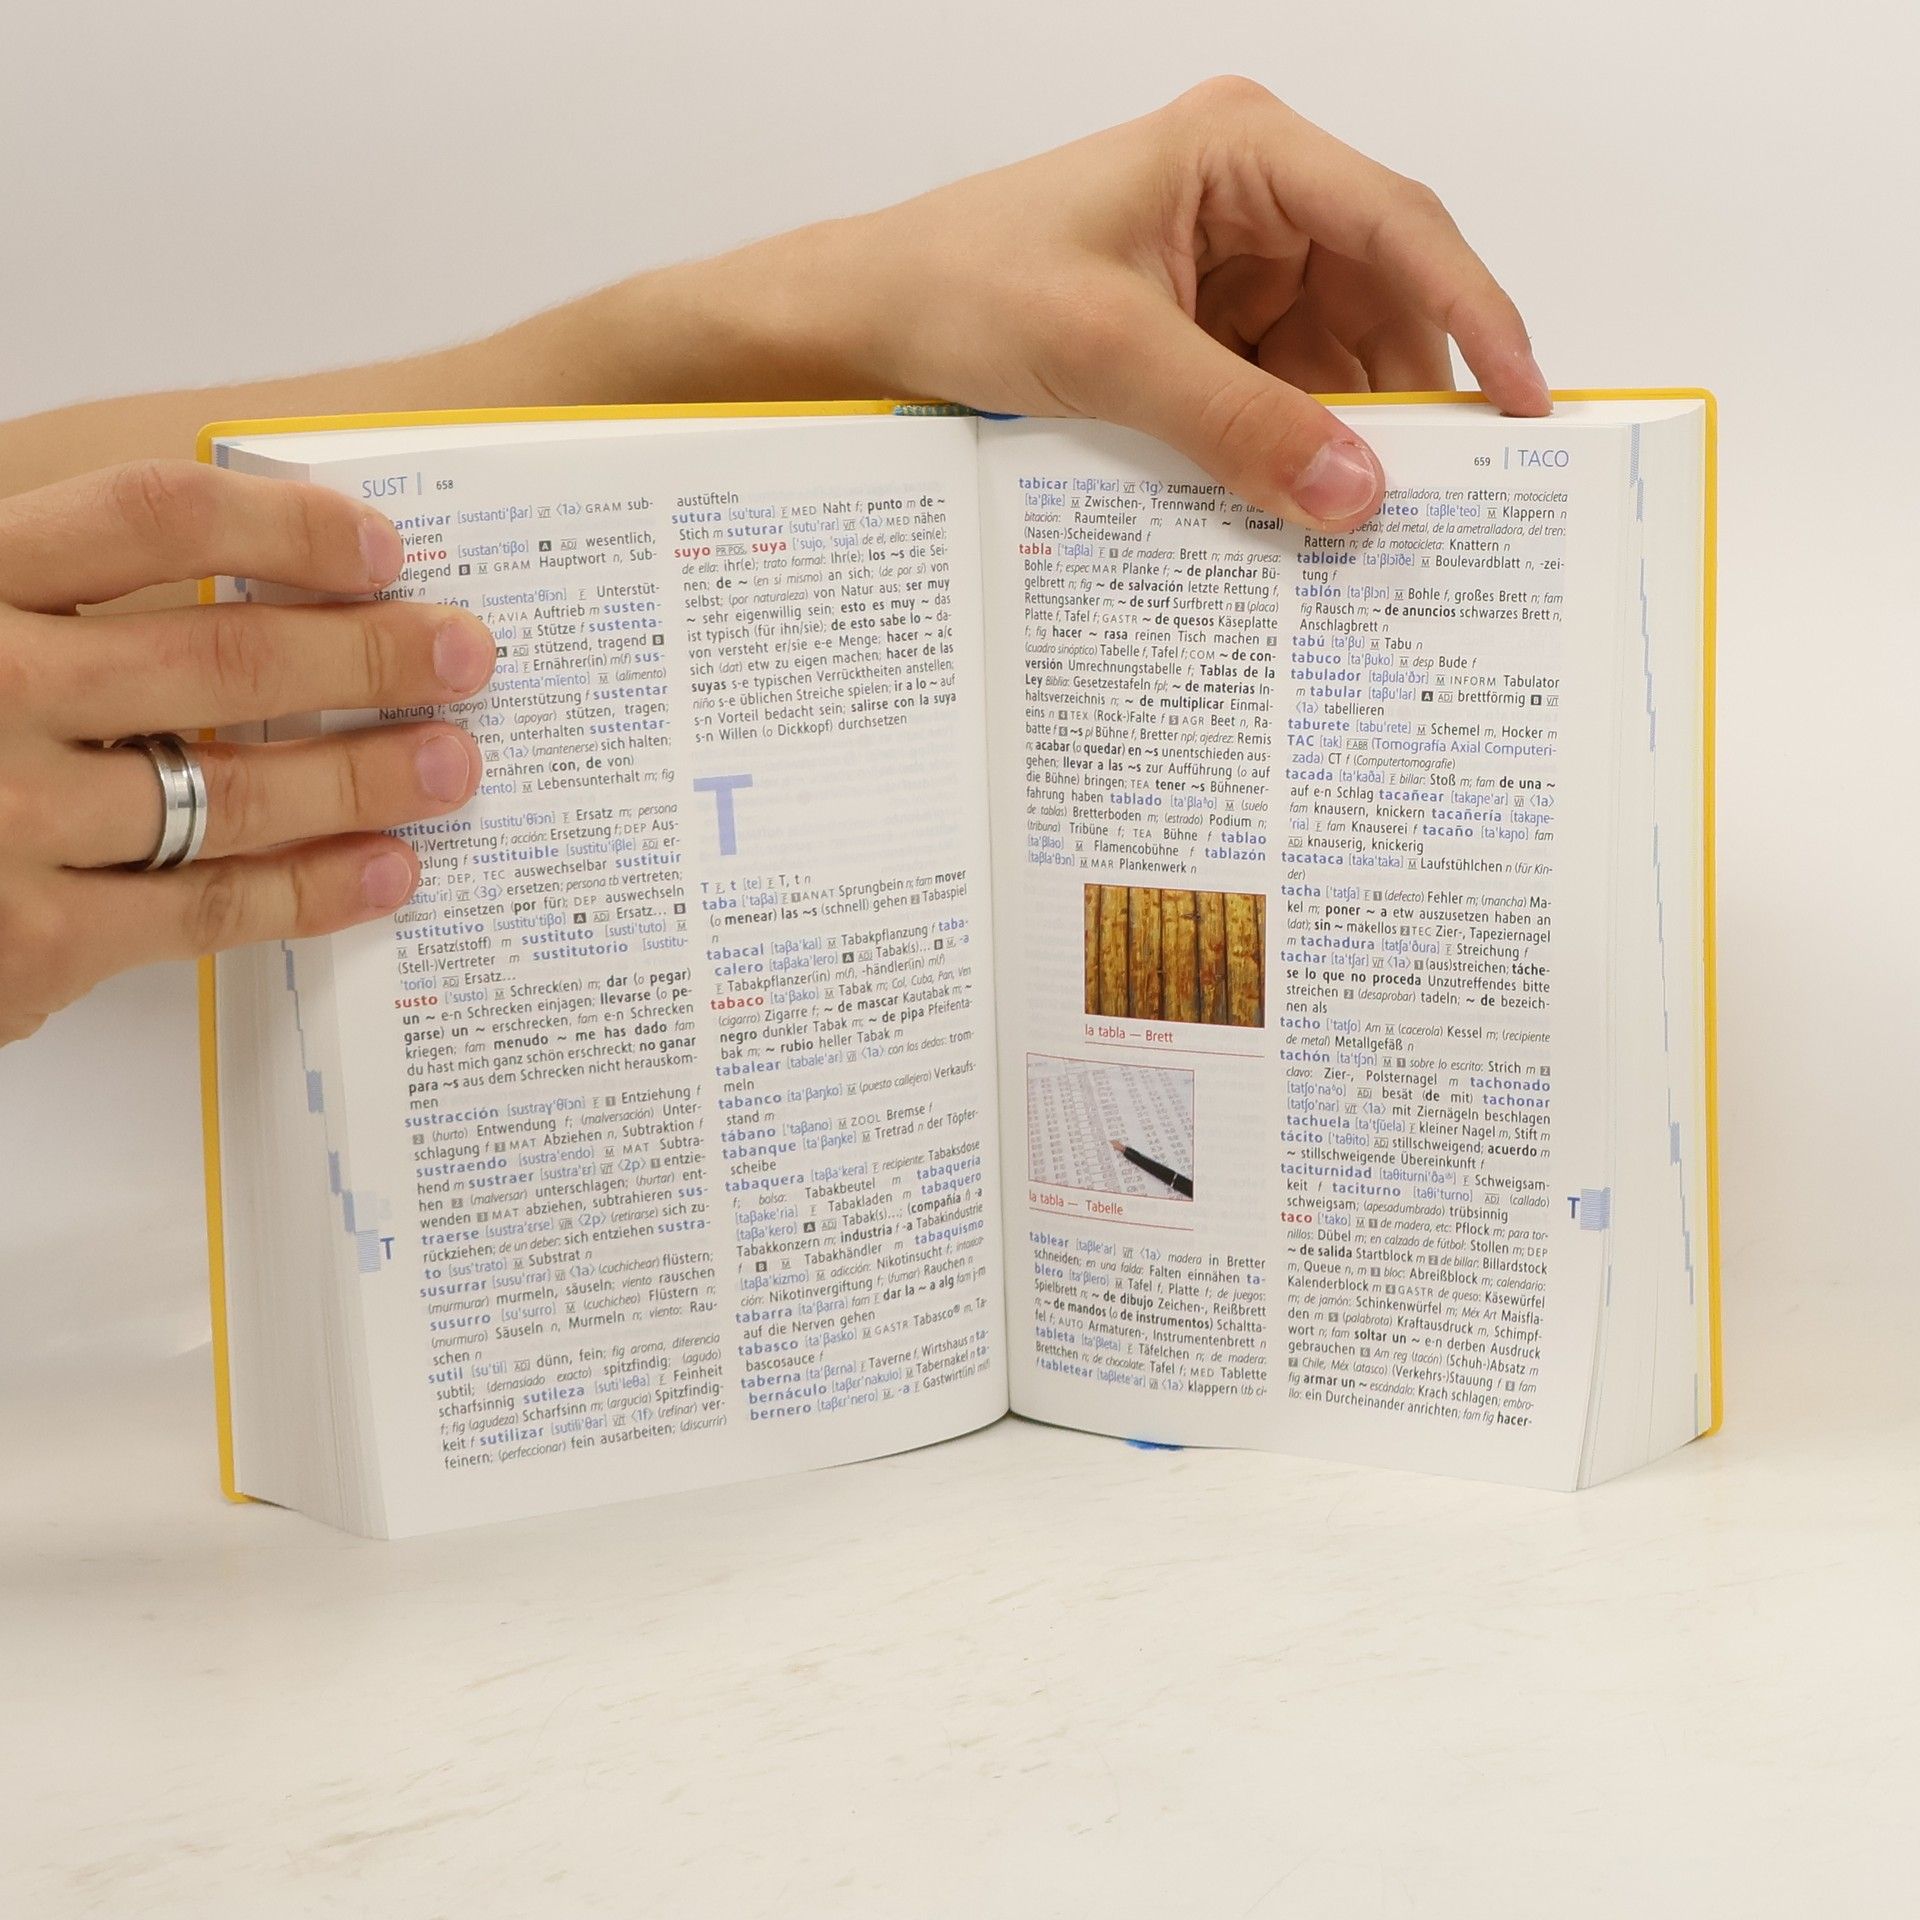 SUST | 658
antivar [sustanti'βar] V/T ⟨1a⟩ GRAM sub-
ivieren
ntivo [sustan'tiβo] A ADJ wesentlich,
ndlegend B M GRAM Hauptwort n, Sub-
stantiv n
ión [sustenta'θĭɔn] F Unterstüt-
f; AVIA Auftrieb m susten-
ulo] M Stütze f sustenta-
A ADJ stützend, tragend B
ora] F Ernährer(in) m(f) sus-
[sustenta'mĭento] M (alimento)
Nahrung f; (apoyo) Unterstützung f sustentar
V/T ⟨1a⟩ (apoyar) stützen, tragen;
hren, unterhalten sustentar-
V/R ⟨1a⟩ (mantenerse) sich halten;
ernähren (con, de von)
tento] M Lebensunterhalt m; fig
sustitución [sustitu'θĭɔn] F Ersatz m; persona
ll-)Vertretung f; acción: Ersetzung f; DEP Aus-
slung f sustituible [sustitu'iβle] ADJ er-
bar; DEP, TEC auswechselbar sustituir
stitu'ir] V/T ⟨3g⟩ ersetzen; persona tb vertreten;
(utilizar) einsetzen (por für); DEP auswechseln
sustitutivo [sustitu'tiβo] A ADJ Ersatz... B
M Ersatz(stoff) m sustituto [susti'tuto] M
(Stell-)Vertreter m sustitutorio [sustitu-
'torĭo] ADJ Ersatz...
susto ['susto] M Schreck(en) m; dar (o pegar)
un ~ e-n Schrecken einjagen; llevarse (o pe-
garse) un ~ erschrecken, fam e-n Schrecken
kriegen; fam menudo ~ me has dado fam
du hast mich ganz schön erschreckt; no ganar
para ~s aus dem Schrecken nicht herauskom-
men
sustracción [sustraɣ'θĭɔn] F 1 Entziehung f
2 (hurto) Entwendung f; (malversación) Unter-
schlagung f 3 MAT Abziehen n, Subtraktion f
sustraendo [sustra'endo] M MAT Subtra-
hend m sustraer [sustra'ɛr] V/T ⟨2p⟩ 1 entzie-
hen 2 (malversar) unterschlagen; (hurtar) ent-
wenden 3 MAT abziehen, subtrahieren sus-
traerse [sustra'ɛrse] V/R ⟨2p⟩ (retirarse) sich zu-
rückziehen; de un deber: sich entziehen sustra-
to [sus'trato] M Substrat n
susurrar [susu'rrar] V/T ⟨1a⟩ (cuchichear) flüstern;
(murmurar) murmeln, säuseln; viento rauschen
susurro [su'surro] M (cuchicheo) Flüstern n;
(murmuro) Säuseln n, Murmeln n; viento: Rau-
schen n
sutil [su'til] ADJ dünn, fein; fig aroma, diferencia
subtil; (demasiado exacto) spitzfindig; (agudo)
scharfsinnig sutileza [suti'leθa] F Feinheit
f; fig (agudeza) Scharfsinn m; (argucia) Spitzfindig-
keit f sutilizar [sutili'θar] V/T ⟨1f⟩ (refinar) ver-
feinern; (perfeccionar) fein ausarbeiten; (discurrir)
austüfteln
sutura [su'tura] F MED Naht f; punto m de ~
Stich m suturar [sutu'rar] V/T ⟨1a⟩ MED nähen
suyo PR POS, suya ['sujo, 'suja] de él, ello: sein(e);
de ella: ihr(e); trato formal: Ihr(e); los ~s die Sei-
nen; de ~ (en sí mismo) an sich; (de por sí) von
selbst; (por naturaleza) von Natur aus; ser muy
~ sehr eigenwillig sein; esto es muy ~ das
ist typisch (für ihn/sie); de esto sabe lo ~ da-
von versteht er/sie e-e Menge; hacer ~ a/c
sich (dat) etw zu eigen machen; hacer de las
suyas s-e typischen Verrücktheiten anstellen;
niño s-e üblichen Streiche spielen; ir a lo ~ auf
s-n Vorteil bedacht sein; salirse con la suya
s-n Willen (o Dickkopf) durchsetzen
T
T F, t [te] F T, t n
taba ['taβa] F 1 ANAT Sprungbein n; fam mover
(o menear) las ~s (schnell) gehen 2 Tabaspiel
n
tabacal [taβa'kal] M Tabakpflanzung f taba-
calero [taβaka'lero] A ADJ Tabak(s)... B M, -a
F Tabakpflanzer(in) m(f), -händler(in) m(f)
tabaco [ta'βako] M Tabak m; Col, Cuba, Pan, Ven
(cigarro) Zigarre f; ~ de mascar Kautabak m; ~
negro dunkler Tabak m; ~ de pipa Pfeifenta-
bak m; ~ rubio heller Tabak m
tabalear [tabale'ar] V/I ⟨1a⟩ con los dedos: trom-
meln
tabanco [ta'βaŋko] M (puesto callejero) Verkaufs-
stand m
tábano ['taβano] M ZOOL Bremse f
tabanque [ta'βaŋke] M Tretrad n der Töpfer-
scheibe
tabaquera [taβa'kera] F recipiente: Tabaksdose
f; bolsa: Tabakbeutel m tabaquería
[taβake'ria] F Tabakladen m tabaquero
[taβa'kero] A ADJ Tabak(s)...; (compañía f) -a
Tabakkonzern m; industria f -a Tabakindustrie
f B M Tabakhändler m tabaquismo
[taβa'kizmo] M adicción: Nikotinsucht f; intoxica-
ción: Nikotinvergiftung f; (fumar) Rauchen n
tabarra [ta'βarra] fam F dar la ~ a alg fam j-m
auf die Nerven gehen
tabasco [ta'βasko] M GASTR Tabasco® m, Ta-
bascosauce f
taberna [ta'βɛrna] F Taverne f, Wirtshaus n ta-
bernáculo [taβɛr'nakulo] M Tabernakel n ta-
bernero [taβɛr'nero] M, -a F Gastwirt(in) m(f)
T
659 | TACO
tabicar [taβi'kar] V/T ⟨1g⟩ zumauern
[ta'βike] M Zwischen-, Trennwand f; en una
bitación: Raumteiler m; ANAT ~ (nasal)
(Nasen-)Scheidewand f
tabla ['taβla] F 1 de madera: Brett n; más gruesa:
Bohle f; espec MAR Planke f; ~ de planchar Bü-
gelbrett n; fig ~ de salvación letzte Rettung f,
Rettungsanker m; ~ de surf Surfbrett n 2 (placa)
Platte f, Tafel f; GASTR ~ de quesos Käseplatte
f; fig hacer ~ rasa reinen Tisch machen 3
(cuadro sinóptico) Tabelle f, Tafel f; COM ~ de con-
versión Umrechnungstabelle f; Tablas de la
Ley Biblia: Gesetzestafeln fpl; ~ de materias In-
haltsverzeichnis n; ~ de multiplicar Einmal-
eins n 4 TEX (Rock-)Falte f 5 AGR Beet n, Ra-
batte f 6 ~s pl Bühne f, Bretter npl; ajedrez: Remis
n; acabar (o quedar) en ~s unentschieden aus-
gehen; llevar a las ~s zur Aufführung (o auf
die Bühne) bringen; TEA tener ~s Bühnener-
fahrung haben tablado [ta'βlaᵟo] M (suelo
de tablas) Bretterboden m; (estrado) Podium n;
(tribuna) Tribüne f; TEA Bühne f tablao
[ta'βlao] M Flamencobühne f tablazón
[taβla'θɔn] M MAR Plankenwerk n
la tabla — Brett
la tabla — Tabelle
tablear [taβle'ar] V/T ⟨1a⟩ madera in Bretter
schneiden; en una falda: Falten einnähen ta-
blero [ta'βlero] M Tafel f, Platte f; de juegos:
Spielbrett n; ~ de dibujo Zeichen-, Reißbrett
n; ~ de mandos (o de instrumentos) Schaltta-
fel f; AUTO Armaturen-, Instrumentenbrett n
tableta [ta'βleta] F Täfelchen n; de madera:
Brettchen n; de chocolate: Tafel f; MED Tablette
f tabletear [taβlete'ar] V/I ⟨1a⟩ klappern (tb ci-
metralladora, tren rattern; motocicleta
leteo [taβle'teo] M Klappern n
eña); del metal, de la ametralladora, del tren:
Rattern n; de la motocicleta: Knattern n
tabloide [ta'βlɔĭðe] M Boulevardblatt n, -zei-
tung f
tablón [ta'βlɔn] M Bohle f, großes Brett n; fam
fig Rausch m; ~ de anuncios schwarzes Brett n,
Anschlagbrett n
tabú [ta'βu] M Tabu n
tabuco [ta'βuko] M desp Bude f
tabulador [taβula'ðɔr] M INFORM Tabulator
m tabular [taβu'lar] A ADJ brettförmig B V/T
⟨1a⟩ tabellieren
taburete [tabu'rete] M Schemel m, Hocker m
TAC [tak] FABR (Tomografía Axial Computeri-
zada) CT f (Computertomografie)
tacada [ta'kaða] F billar: Stoß m; fam de una ~
auf e-n Schlag tacañear [takaɲe'ar] V/I ⟨1a⟩
fam knausern, knickern tacañería [takaɲe-
'ria] F fam Knauserei f tacaño [ta'kaɲo] fam
ADJ knauserig, knickerig
tacataca [taka'taka] M Laufstühlchen n (für Kin-
der)
tacha ['tatʃa] F 1 (defecto) Fehler m; (mancha) Ma-
kel m; poner ~ a etw auszusetzen haben an
(dat); sin ~ makellos 2 TEC Zier-, Tapeziernagel
m tachadura [tatʃa'ðura] F Streichung f
tachar [ta'tʃar] V/T ⟨1a⟩ 1 (aus)streichen; táche-
se lo que no proceda Unzutreffendes bitte
streichen 2 (desaprobar) tadeln; ~ de bezeich-
nen als
tacho ['tatʃo] Am M (cacerola) Kessel m; (recipiente
de metal) Metallgefäß n
tachón [ta'tʃɔn] M 1 sobre lo escrito: Strich m 2
clavo: Zier-, Polsternagel m tachonado
[tatʃo'naᵟo] ADJ besät (de mit) tachonar
[tatʃo'nar] V/T ⟨1a⟩ mit Ziernägeln beschlagen
tachuela [ta'tʃŭela] F kleiner Nagel m, Stift m
tácito ['taθito] ADJ stillschweigend; acuerdo m
~ stillschweigende Übereinkunft f
taciturnidad [taθiturni'ðaᵟ] F Schweigsam-
keit f taciturno [taθi'turno] ADJ (callado)
schweigsam; (apesadumbrado) trübsinnig
taco ['tako] M 1 de madera, etc: Pflock m; para tor-
nillos: Dübel m; en calzado de fútbol: Stollen m; DEP
~ de salida Startblock m 2 de billar: Billardstock
m, Queue n, m 3 bloc: Abreißblock m; calendario:
Kalenderblock m 4 GASTR de queso: Käsewürfel
m; de jamón: Schinkenwürfel m; Méx Art Maisfla-
den m 5 (palabrota) Kraftausdruck m, Schimpf-
wort n; fam soltar un ~ e-n derben Ausdruck
gebrauchen 6 Am reg (tacón) (Schuh-)Absatz m
7 Chile, Méx (atasco) (Verkehrs-)Stauung f 8 fam
fig armar un ~ escándalo: Krach schlagen; embro-
llo: ein Durcheinander anrichten; fam fig hacer-
T